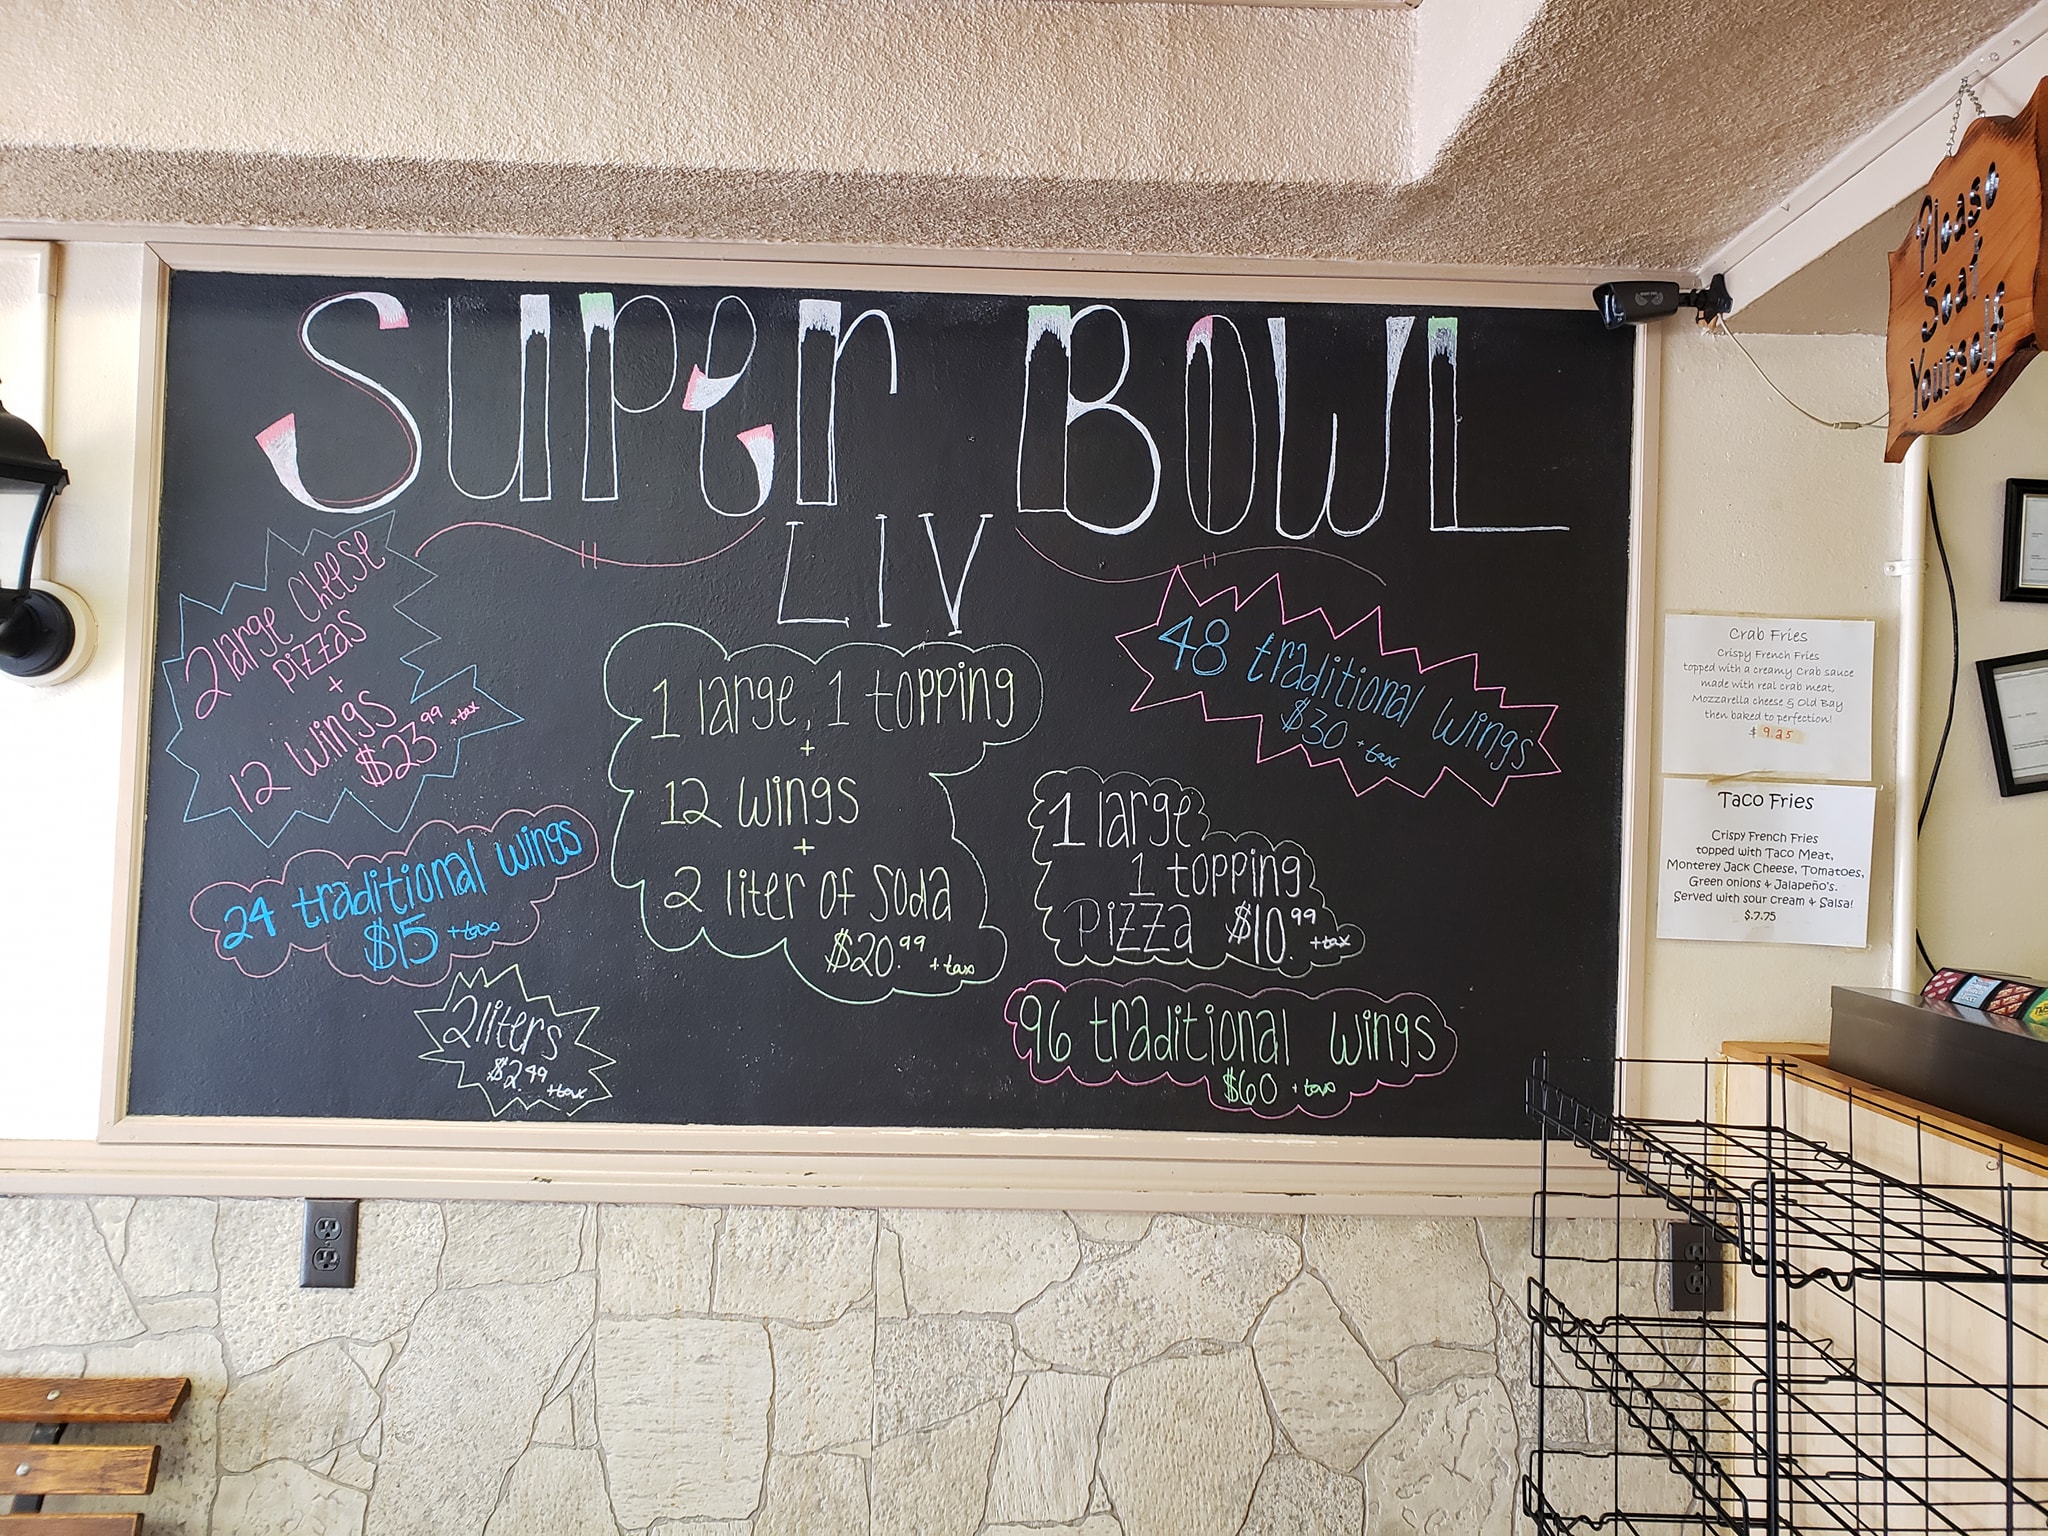 SUPer BOWL
LIV
2 large Cheese
pizzas
+
12 wings
$23.99 + tax
24 traditional wings
$15 + tax
2 liters
$2.49 + tax
1 large, 1 topping
+
12 wings
+
2 liter of soda
$20.99 + tax
48 traditional wings
$30 + tax
1 large
1 topping
pizza $10.99 + tax
96 traditional wings
$60 + tax
Please
Seat
Yourself
Crab Fries
Crispy French Fries
topped with a creamy Crab sauce
made with real crab meat,
Mozzarella cheese & Old Bay
then baked to perfection!
$ 9.25
Taco Fries
Crispy French Fries
topped with Taco Meat,
Monterey Jack Cheese, Tomatoes,
Green onions & Jalapeño's.
Served with sour cream & Salsa!
$.7.75